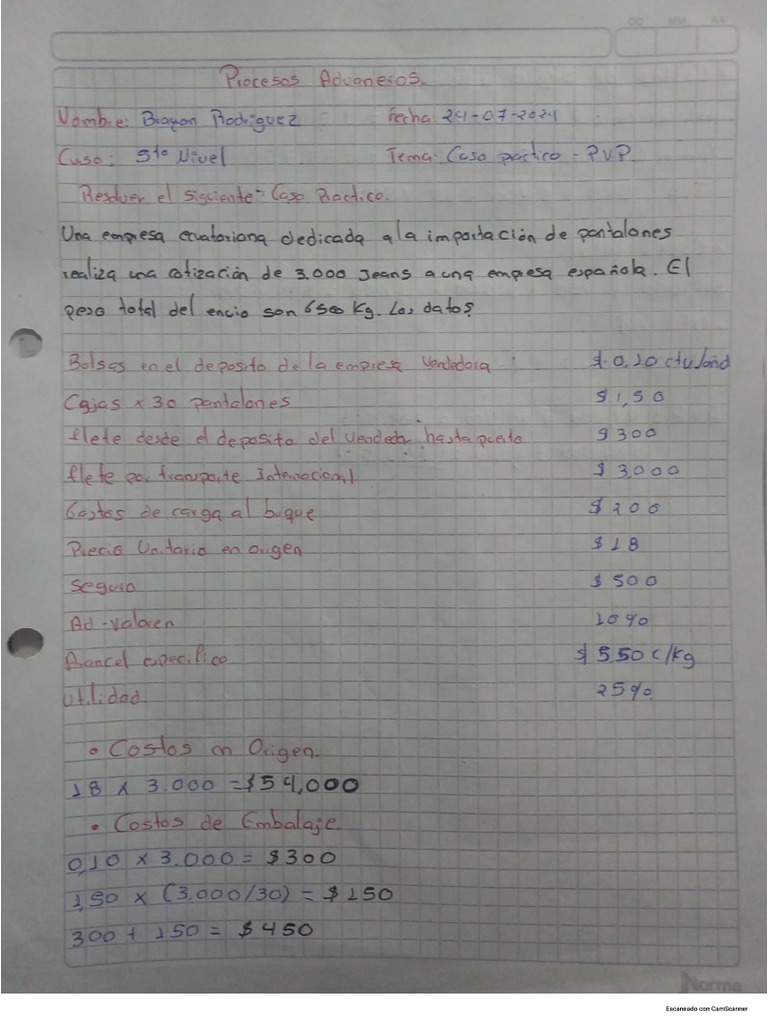 DD MM AA
Procesos Aduaneros.
Nombre: Brayan Rodriguez Fecha: 24-07-2024
Cuso: 5to Nivel Tema: Caso pactico - P.V.P.
Resolver el siguiente - Caso Practico.
Una empresa ecuatoriana dedicada a la importación de pantalones
realiza una cotización de 3.000 Jeans a una empresa española. El
peso total del encio son 6500 Kg. Los datos
Bolsas en el deposito de la empresa Vendedora $ 0,10 ctv/und
Cajas x 30 pantalones $ 1,50
flete desde el deposito del vendedor hasta puerto $ 300
flete por transporte Internacional $ 3,000
Gastos de carga al buque $ 200
Precio Unitario en origen $ 18
Seguro $ 500
Ad-valoren 10%
Arancel especifico $ 5,50 c/kg
Utilidad 25%
• Costos en Origen.
18 x 3.000 = $54,000
• Costos de Embalaje
0,10 x 3.000 = $300
1,50 x (3.000/30) = $150
300 + 150 = $450
Norma
Escaneado con CamScanner